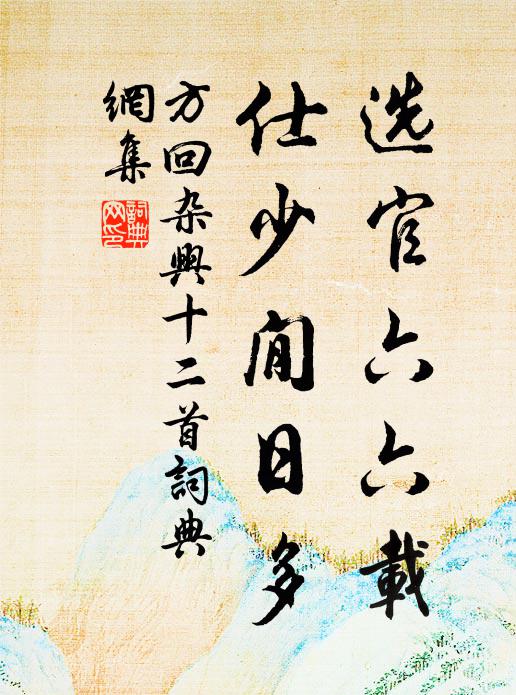 选官六六載
仕少閒日多
方回杂興十二首詞典
網集
詞典
网印